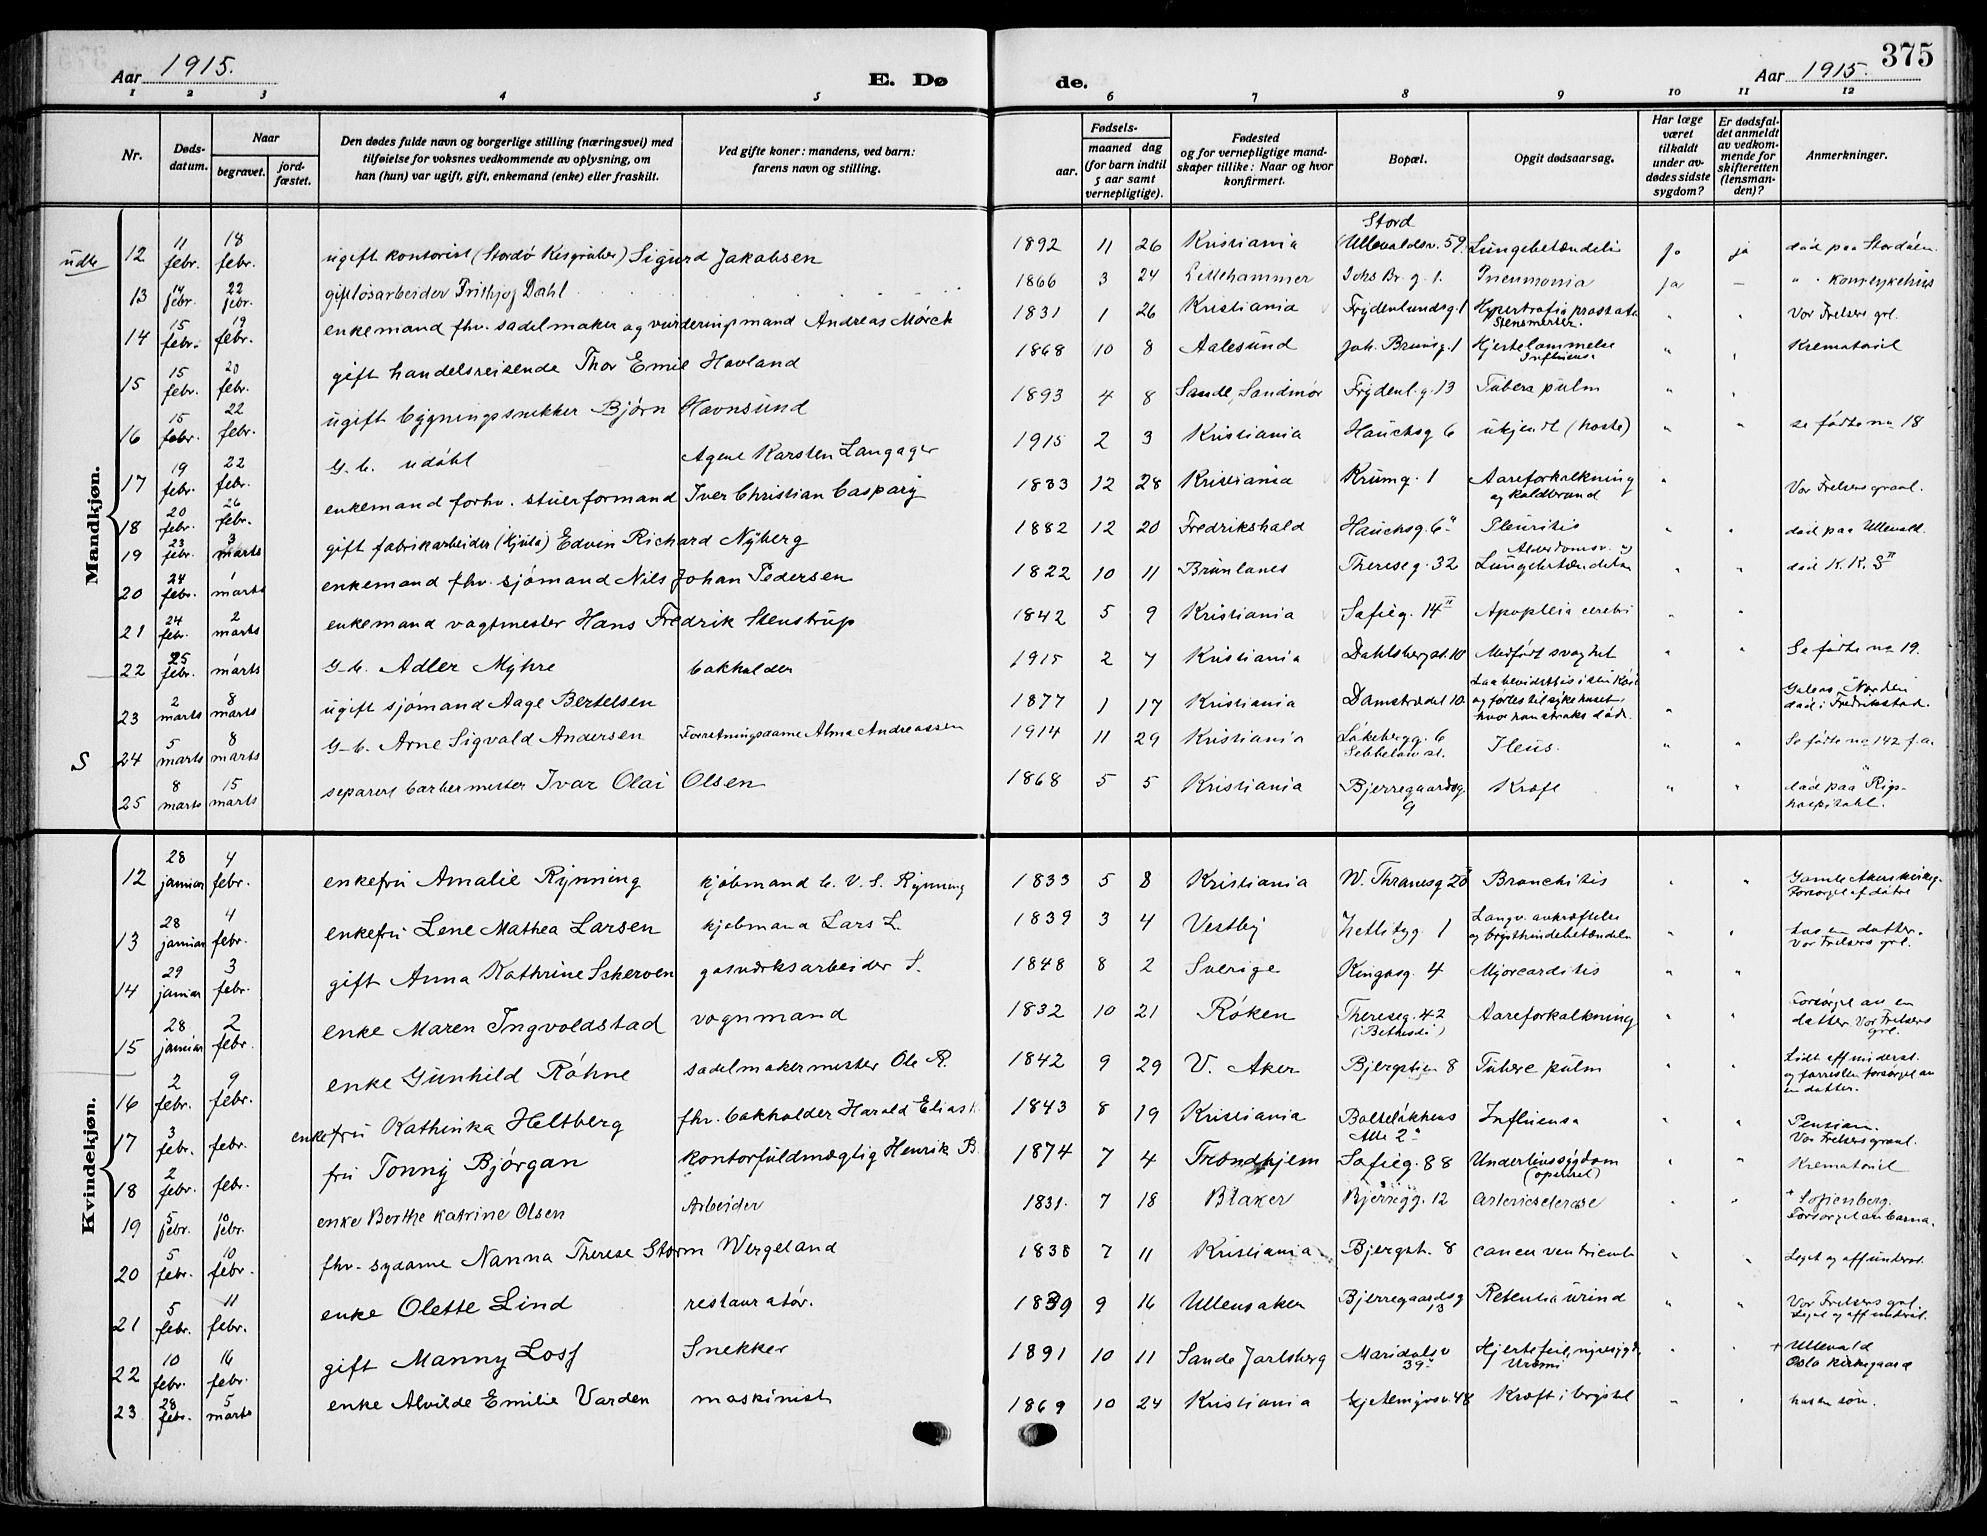 Aar 1915.
E. Døde.
Aar 1915.
375
1 2 3 4 5 6 7 8 9 10 11 12
Nr.
Døds-datum.
Naar
begravet.
jord-fæstet.
Den dødes fulde navn og borgerlige stilling (næringsvei) med tilføielse for voksnes vedkommende av oplysning, om han (hun) var ugift, gift, enkemand (enke) eller fraskilt.
Ved gifte koner: mandens, ved barn: farens navn og stilling.
Fødsels-
aar. maaned dag
(for barn indtil 5 aar samt vernepligtige).
Fødested og for vernepligtige mandskaper tillike: Naar og hvor konfirmert.
Bopæl.
Opgit dødsaarsag.
Har læge været tilkaldt under avdødes sidste sygdom?
Er dødsfaldet anmeldt av vedkommende for skifteretten (lensmanden)?
Anmerkninger.
Mandkjøn.
12 11 febr. 18 febr. ugift kontorist (Stordø Kisgruber) Sigurd Jakobsen 1892 11 26 Kristiania Stord (Ullevaldsv. 59. Lungebetændelse Ja ja død paa Stordøen
13 14 febr. 22 febr. gift løsarbeider Frithjof Dahl 1866 3 24 Lillehammer Johs Br. g. 1. Pneumonia ja — " " Kom. sykehus
14 15 febr. 19 febr. enkemand fhv. sadelmaker og vurderingsmand Andreas Mørch 1831 1 26 Kristiania Frydenlundsg. 1 Hypertrofia prostata Stensmerter. " " Vor Frelsers grl.
15 15 febr. 20 febr. gift handelsreisende Thor Emil Hovland 1868 10 8 Aalesund Joh. Brunsg. 1 Hjertelammelse Influensa " " Krematoriet
16 15 febr. 22 febr. ugift bygningssnekker Bjørn Havnsund 1893 4 8 Sande, Søndmør Frydenl. g. 13 Tubera pulm " "
17 19 febr. 22 febr. G. b. udøbt Agent Karsten Langager 1915 2 3 Kristiania Hauchsg 6 ukjendt (hoste) " " se fødte no 18
18 20 febr. 26 febr. enkemand forhv. stuerformand Iver Christian Caspary 1833 12 28 Kristiania Krumg. 1 Aareforkalkning og Koldbrand " Vor Frelsers gravl.
19 23 febr. 3 marts gift fabrikarbeider (Hjula) Edvin Richard Nyberg 1882 12 20 Fredrikshald Hauchsg. 6" Pleuritis " " død paa Ullevold.
20 24 febr. 1 marts enkemand fhv. sjømand Nils Johan Pedersen 1822 10 11 Brunlanes Thereseg. 32 Alderdomsv. og Lungebetændelse " " død K. K. S"
21 24 febr. 2 marts enkemand vagtmester Hans Fredrik Stenstrup 1842 5 9 Kristiania Sofieg. 14 II Apoplexia cerebri " "
22 25 febr. 1 marts G-b. Adler Myhre bokholder 1915 2 7 Kristiania Dahlsbergst. 10 Medfødt svaghet " " Se fødte no 19.
23 2 marts 8 marts ugift sjømand Aage Bertelsen 1877 1 17 Kristiania Damstrædet 10 Laa bevidstløs i sin Køi og førtes til sykehuset, hvor han straks døde. " Galeas "Norden" død i Fredrikstad.
S 24 5 marts 8 marts G-b. Arne Sigvald Andersen Forretningsdame Alma Andreassen 1914 11 29 Kristiania Løkebergg. 6 Ileus. " " Se fødte no 142 f. a.
25 8 marts 15 marts separert barbermester Ivar Olai Olsen 1868 5 5 Kristiania Bjerregaardsg. 9 Kræft " " død paa "Rigshospitalet.
Kvindekjøn.
12 28 januar 4 febr. enkefru Amalie Rynning kjøbmand C. V. S. Rynning 1833 5 8 Kristiania W. Thranesg 20 Bronchitis " " Gamle Akers kirkeg. Forsørget af døtre
13 28 januar 4 febr. enkefru Lene Mathea Larsen kjøbmand Lars L. 1839 3 4 Vestby Zetlitzg 1 Langv. avkræftelse og brysthindebetændelse " " hos en datter. Vor Frelsers grl.
14 29 januar 3 febr. gift Anna Kathrine Scherven gasværksarbeider S. 1848 8 2 Sverige Kingosg. 4 Myocarditis " "
15 28 januar 2 febr. enke Maren Ingvoldstad vognmand 1832 10 21 Røken Thereseg. 42 (Bethesda) Aareforkalkning " " Forsørget av en datter. Vor Frelsers grl.
16 2 febr. 9 febr. enke Gunhild Røhne sadelmakermester Ole R. 1842 9 29 V. Aker Bjergstien 8 Tuberc pulm " " Lidt off underst. og forresten forsørget av en datter.
17 3 febr. febr. enkefru Kathinka Heltberg fhv. bokholder Harald Elias H. 1843 8 19 Kristiania Bolteløkkens Alle 2" Influensa " " Pension. Vor Frelsers gravl.
18 2 febr. febr. fru Tonny Bjørgan kontorfuldmægtig Henrik B. 1874 7 4 Trondhjem Sofieg. 88 Underlivssygdom (operert) " " Krematoriet
19 5 febr. 10 febr. enke Berthe Katrine Olsen Arbeider 1831. 7 18 Blaker Bjerregg. 12 Arteriesclerose " " + Sofienberg. Forsørget av barna.
20 5 febr. 10 febr. fhv. sydame Nanna Therese Storm Wergeland 1838 7 11 Kristiania Bjergst. 8 cancer ventriculi " " Leget og off underst.
21 5 febr. 11 febr. enke Olette Lind restauratør. 1839 9 16 Ullensaker Bjerregaardsg 13 Retentia urind " " Vor Frelsers grl. Leget og off underst.
22 10 febr. 16 febr. gift Manny Losj Snekker 1891 10 11 Sande Jarlsberg Maridalsv 39" Hjertefeil, nyresygd. Uremi " " + Ullevold Oslo Kirkegaard
23 28 febr. 5 marts enke Alvilde Emilie Varden maskinist 1869 10 24 Kristiania Gjetemyrsv. 48 Kræft i brystet " " hos en søn.